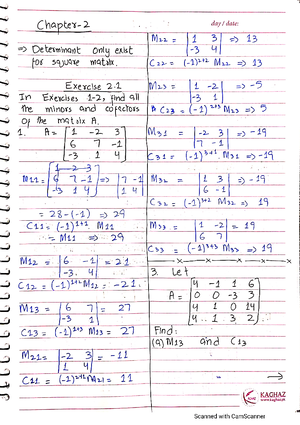 Chapter-2
⇒ Determinant only exist
for square matrix.
Exercise 2.1
In Exercises 1-2, find all
the minors and cofactors
of the matrix A.
1. A = [1 -2 3
6 7 -1
-3 1 4]
M11 = |1 -2 3
6 7 -1
-3 1 4| ⇒ |7 -1
1 4|
= 28-(-1) ⇒ 29
C11 = (-1)^1+1 M11
= M11 ⇒ 29
M12 = |6 -1
-3 4| = 21
C12 = (-1)^1+2 M12 = -21
M13 = |6 7
-3 1| = 27
C13 = (-1)^1+3 M13 = 27
M21 = |-2 3
1 4| = -11
C21 = (-1)^2+1 M21 = 11
day / date:
M22 = |1 3
-3 4| ⇒ 13
C22 = (-1)^2+2 M22 ⇒ 13
M23 = |1 -2
-3 1| ⇒ -5
C23 = (-1)^2+3 M23 ⇒ 5
M31 = |-2 3
7 -1| ⇒ -19
C31 = (-1)^3+1 M31 ⇒ -19
M32 = |1 3
6 -1| ⇒ -19
C32 = (-1)^3+2 M32 ⇒ 19
M33 = |1 -2
6 7| = 19
C33 = (-1)^3+3 M33 ⇒ 19
3. Let
A = [4 -1 1 6
0 0 -3 3
4 1 0 14
4 1 3 2]
Find:
(a) M13 and C13
KAGHAZ
www.kaghaz.pk
Scanned with CamScanner